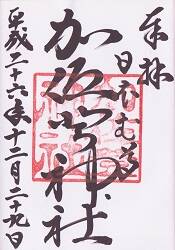 奉拝
日本武尊
加佐登神社
平成二十六年十二月二十九日